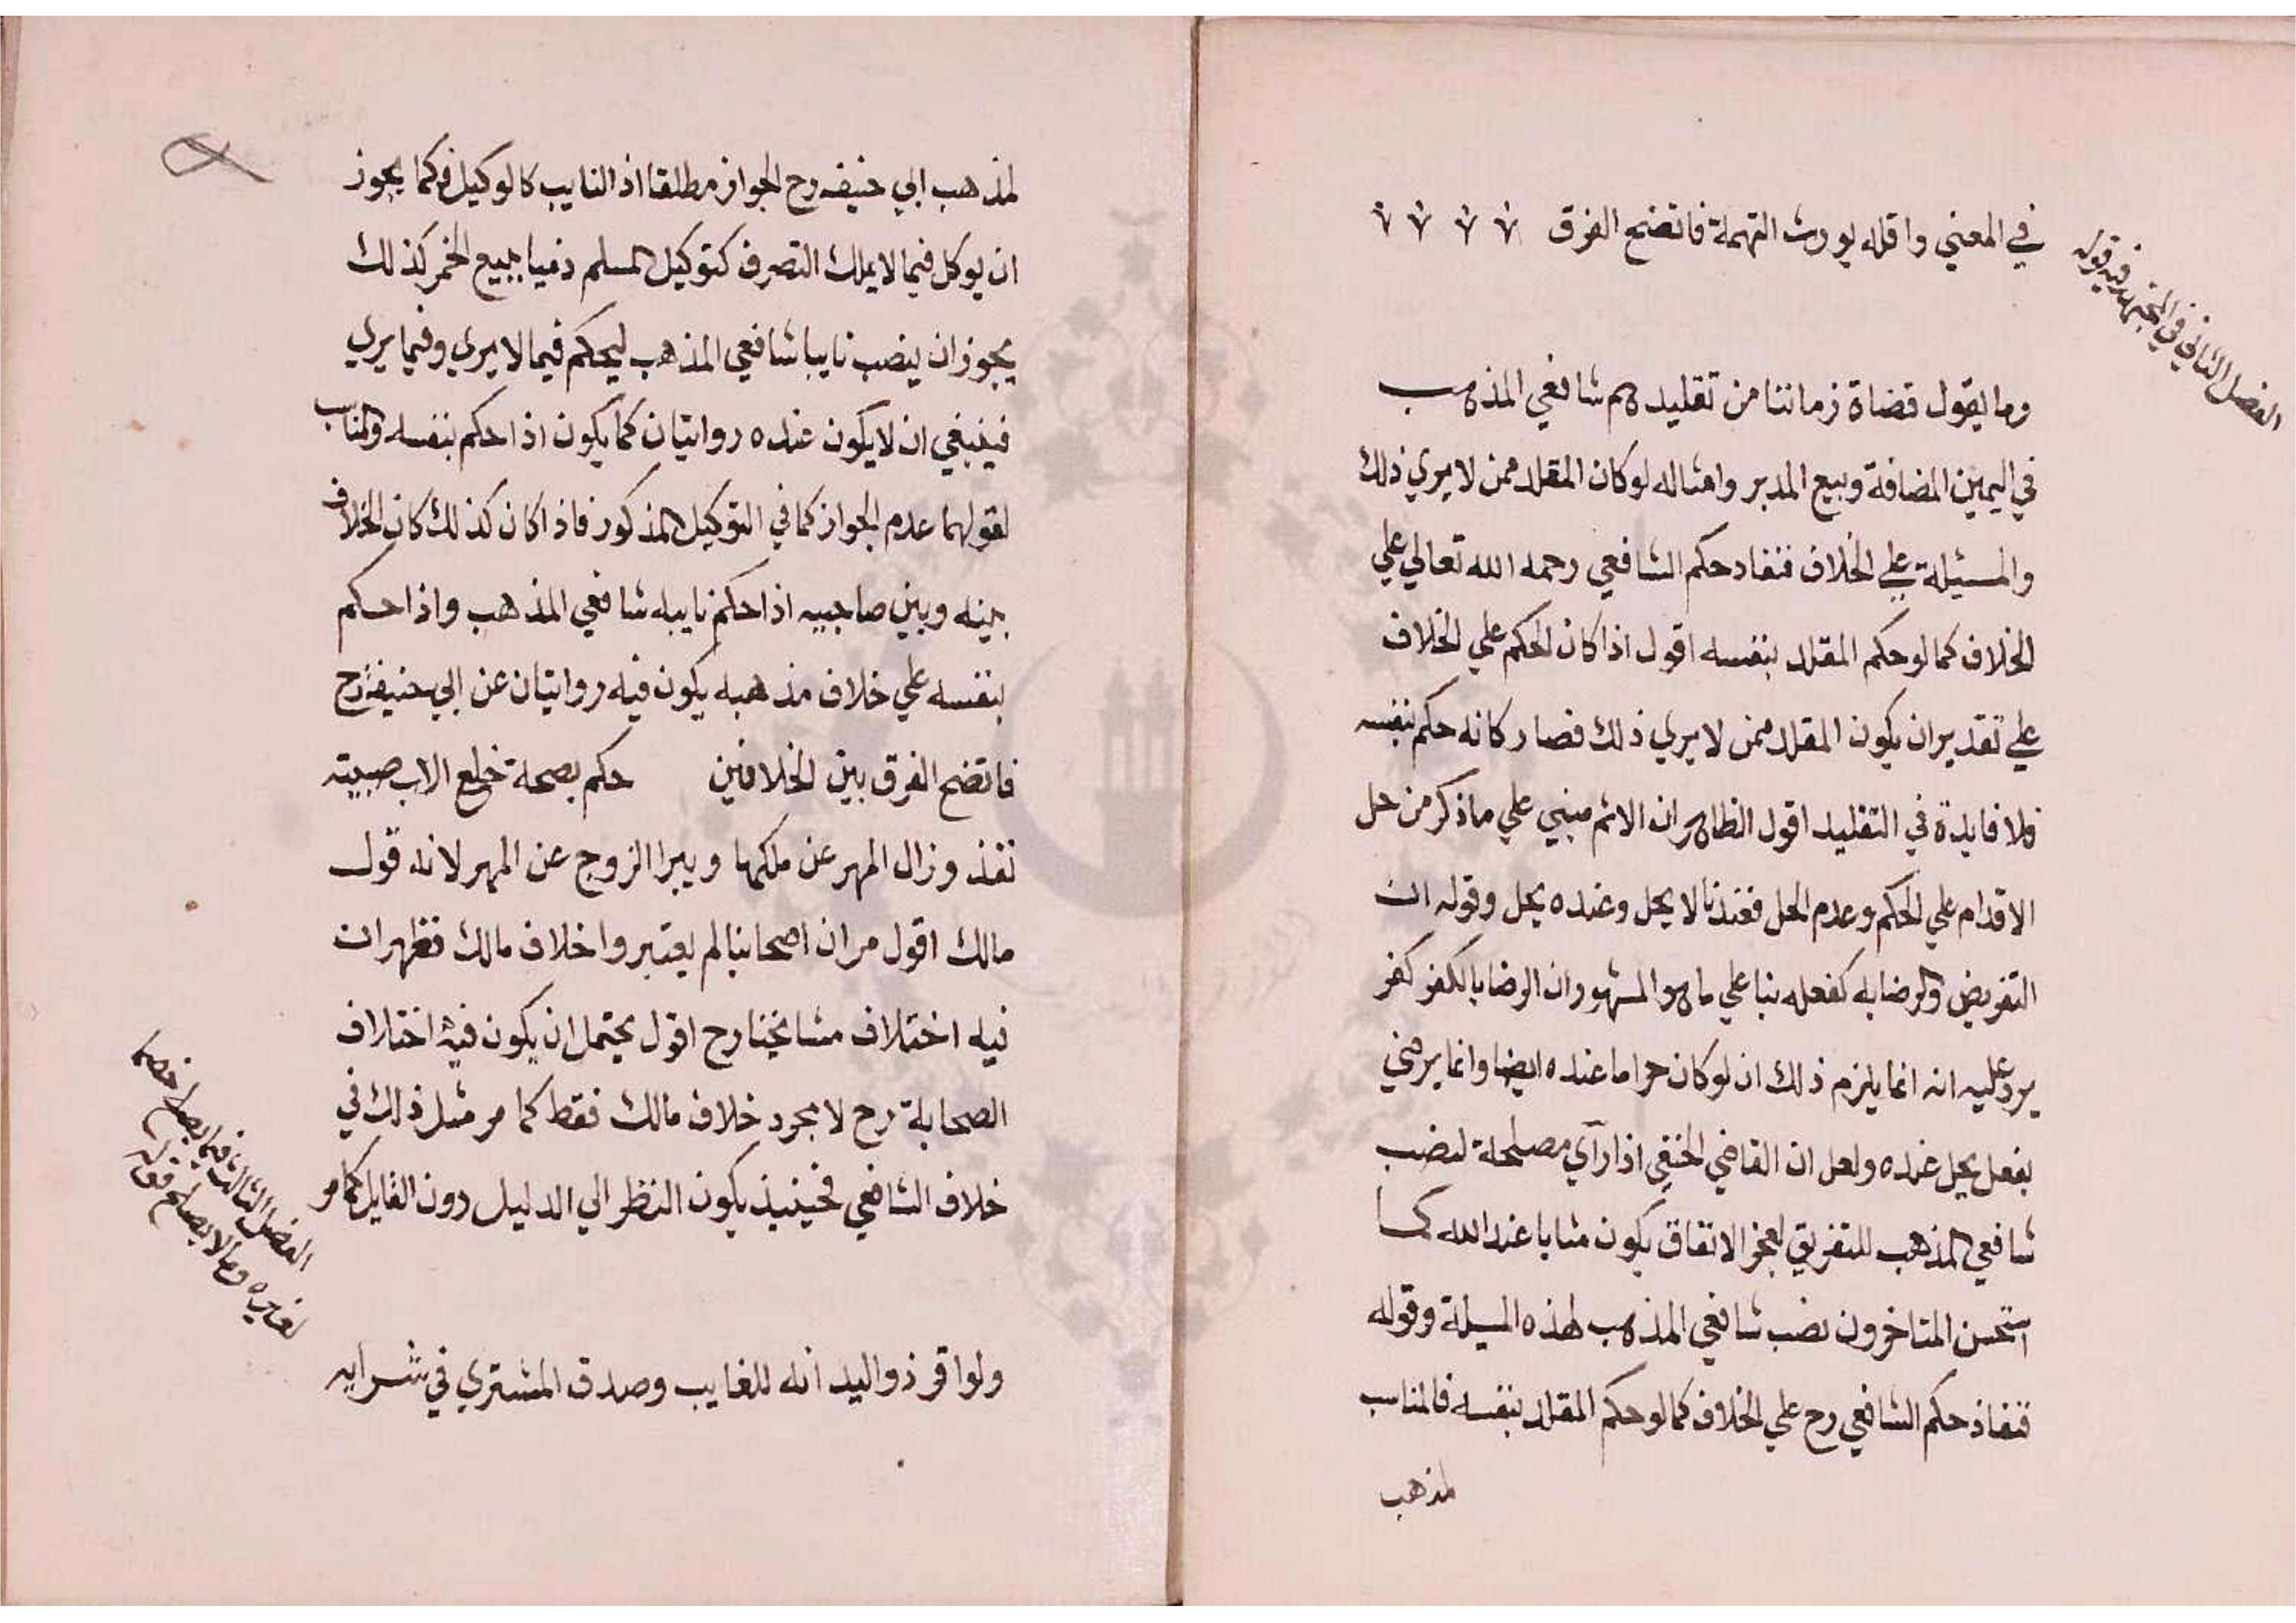 في المعني واقله يورث التهمة فاتضح الفرق
الفصل الثاني في المجتهد فيه قوله
وما يقول قضاة زماننا من تقليدهم شافعي المذهب
في اليمين المضافة وبيع المدبر وامثاله لو كان المقلد ممن لا يري ذلك
والمسئيلة علي الخلاف فنفاد حكم الشافعي رحمه الله تعالي علي
الخلاف كما لو حكم المقلد بنفسه اقول اذا كان الحكم علي الخلاف
علي تقدير ان يكون المقلد ممن لا يري ذلك فصار كانه حكم بنفسه
فلا فايدة في التقليد اقول الظاهر ان الاثم مبني علي ما ذكر من حل
الاقدام علي الحكم وعدم الحل فعندنا لا يحل وعنده يحل وقوله ان
التفويض والرضا به كفعله بنا علي ما هو المشهور ان الرضا بالكفر كفر
يرد عليه انه انما يلزم ذلك ان لو كان حراما عنده ايضا وانما يرضي
بفعل يحل عنده ولعل ان القاضي الحنفي اذا رآي مصلحة لنصب
شافعي المذهب للتفريق لعجز الانفاق يكون مثابا عند الله كما
استحسن المتاخرون نصب شافعي المذهب لهذه المسيلة وقوله
فنفاذ حكم الشافعي رح علي الخلاف كما لو حكم المقلد بنفسه فالمناسب
لمذهب
لمذهب ابي حنيفه رح الجواز مطلقا اذ النايب كالوكيل فكما يجوز
ان يوكل فيما لا يملك التصرف كتوكيل المسلم ذميا ببيع الخمر كذلك
يجوز ان ينصب نايبا شافعي المذهب ليحكم فيما لا يري وفيما يري
فينبغي ان لا يكون عنده روايتان كما يكون اذا حكم بنفسه والمناسب
لقولهما عدم الجواز كما في التوكيل المذكور فاذا كان كذلك كان الخلاف
بينه وبين صاحبيه اذا حكم نايبه شافعي المذهب واذا حكم
بنفسه علي خلاف مذهبه يكون فيه روايتان عن ابي حنيفة رح
فاتضح الفرق بين الخلافين حكم بصحة خلع الاب صبيته
نفذ وزال المهر عن ملكها ويبرا الزوج عن المهر لانه قول
مالك اقول مر ان اصحابنا لم يعتبروا خلاف مالك فظهر ان
فيه اختلاف مشايخنا رح اقول يحتمل ان يكون فيه اختلاف
الصحابة رح لا مجرد خلاف مالك فقط كما مر مثل ذلك في
خلاف الشافعي فحينيذ يكون النظر الي الدليل دون القايل كما مر
الفصل الثالث فيما يصلح خصما
لغيره وما لا يصلح قوله
ولو اقر ذو اليد انه للغايب وصدق المشتري في شرايه